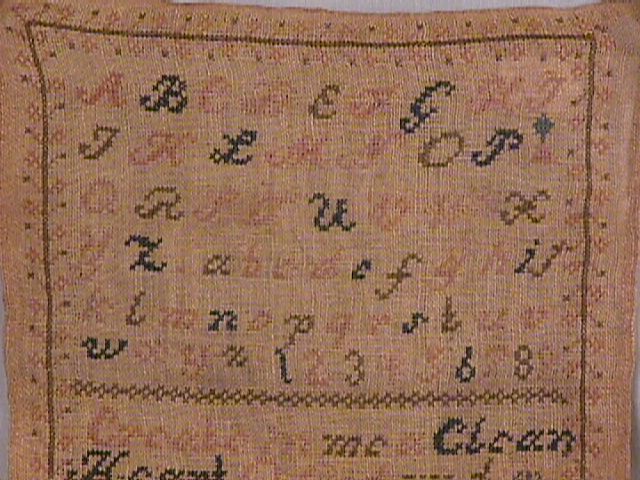 A B C D E F G H I
J K L M N O P
Q R S T U V W X
Z a b c d e f g h i j
k l m n o p q r s t u v
w x y z 1 2 3 4 5 6 7 8
Create in me a Clean
Heart